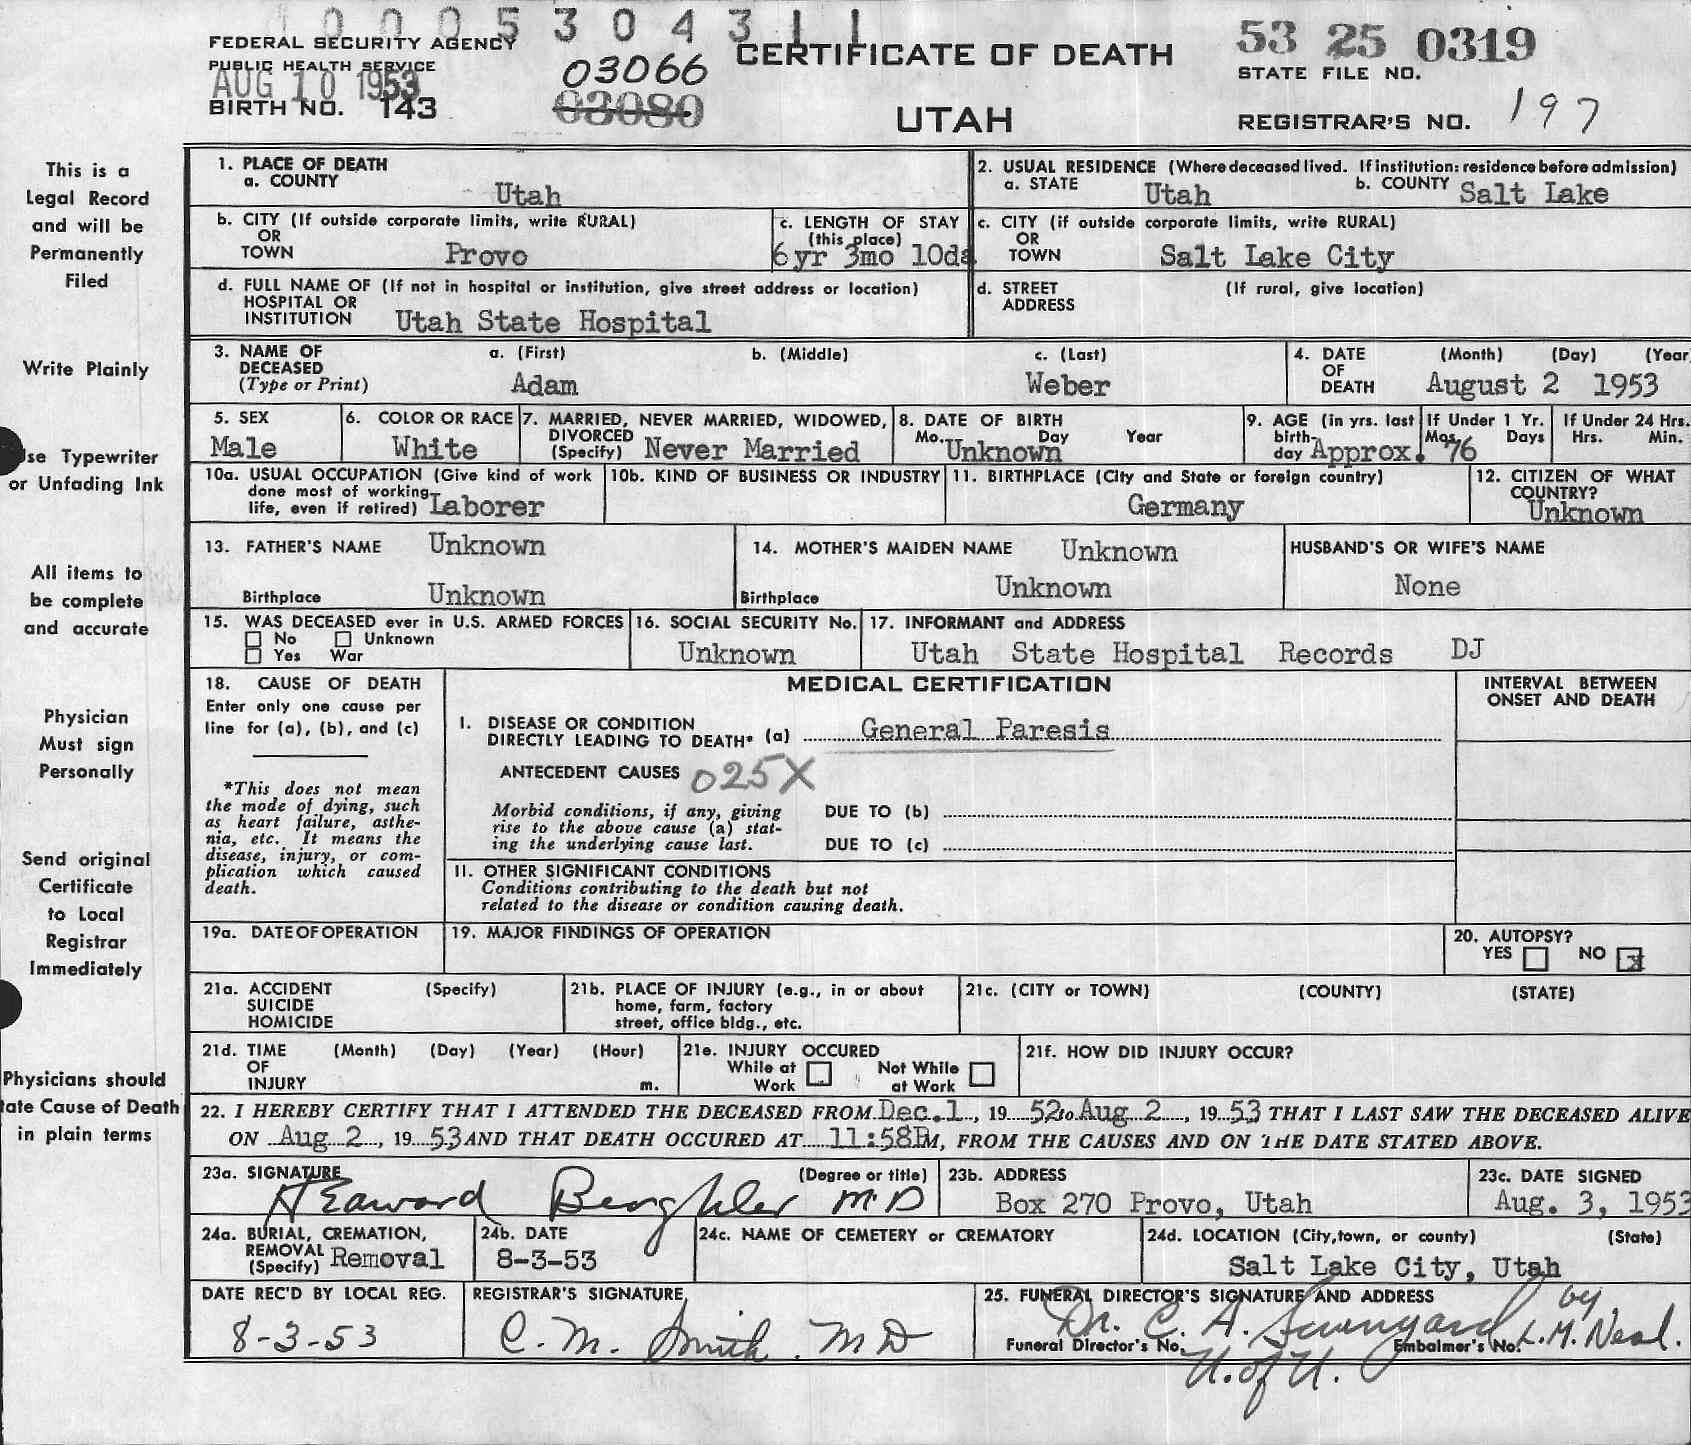 0005304311
FEDERAL SECURITY AGENCY
PUBLIC HEALTH SERVICE
AUG 10 1953
BIRTH NO. 143
03066
03080
CERTIFICATE OF DEATH
UTAH
53 25 0319
STATE FILE NO.
REGISTRAR'S NO. 197
This is a
Legal Record
and will be
Permanently
Filed
Write Plainly
se Typewriter
or Unfading Ink
All items to
be complete
and accurate
Physician
Must sign
Personally
Send original
Certificate
to Local
Registrar
Immediately
Physicians should
tate Cause of Death
in plain terms
1. PLACE OF DEATH
a. COUNTY Utah
2. USUAL RESIDENCE (Where deceased lived. If institution: residence before admission)
a. STATE Utah b. COUNTY Salt Lake
b. CITY (If outside corporate limits, write RURAL)
OR
TOWN Provo
c. LENGTH OF STAY
(this place)
6yr 3mo 10da
c. CITY (if outside corporate limits, write RURAL)
OR
TOWN Salt Lake City
d. FULL NAME OF (If not in hospital or institution, give street address or location)
HOSPITAL OR
INSTITUTION Utah State Hospital
d. STREET (If rural, give location)
ADDRESS
3. NAME OF a. (First) b. (Middle) c. (Last)
DECEASED
(Type or Print) Adam Weber
4. DATE (Month) (Day) (Year
OF
DEATH August 2 1953
5. SEX
Male
6. COLOR OR RACE
White
7. MARRIED, NEVER MARRIED, WIDOWED,
DIVORCED
(Specify) Never Married
8. DATE OF BIRTH
Mo. Day Year
Unknown
9. AGE (in yrs. last
birth-
day Approx. 76
If Under 1 Yr.
Mos. Days
If Under 24 Hrs.
Hrs. Min.
10a. USUAL OCCUPATION (Give kind of work
done most of working
life, even if retired) Laborer
10b. KIND OF BUSINESS OR INDUSTRY
11. BIRTHPLACE (City and State or foreign country)
Germany
12. CITIZEN OF WHAT
COUNTRY?
Unknown
13. FATHER'S NAME Unknown
Birthplace Unknown
14. MOTHER'S MAIDEN NAME Unknown
Birthplace Unknown
HUSBAND'S OR WIFE'S NAME
None
15. WAS DECEASED ever in U.S. ARMED FORCES
No Unknown
Yes War
16. SOCIAL SECURITY No.
Unknown
17. INFORMANT and ADDRESS
Utah State Hospital Records DJ
18. CAUSE OF DEATH
Enter only one cause per
line for (a), (b), and (c)
*This does not mean
the mode of dying, such
as heart failure, asthe-
nia, etc. It means the
disease, injury, or com-
plication which caused
death.
MEDICAL CERTIFICATION
I. DISEASE OR CONDITION
DIRECTLY LEADING TO DEATH* (a) General Paresis
ANTECEDENT CAUSES 025X
Morbid conditions, if any, giving
rise to the above cause (a) stat-
ing the underlying cause last.
DUE TO (b)
DUE TO (c)
II. OTHER SIGNIFICANT CONDITIONS
Conditions contributing to the death but not
related to the disease or condition causing death.
INTERVAL BETWEEN
ONSET AND DEATH
19a. DATE OF OPERATION
19. MAJOR FINDINGS OF OPERATION
20. AUTOPSY?
YES NO x
21a. ACCIDENT (Specify)
SUICIDE
HOMICIDE
21b. PLACE OF INJURY (e.g., in or about
home, farm, factory
street, office bldg., etc.
21c. (CITY or TOWN) (COUNTY) (STATE)
21d. TIME (Month) (Day) (Year) (Hour)
OF
INJURY m.
21e. INJURY OCCURED
While at Not While
Work at Work
21f. HOW DID INJURY OCCUR?
22. I HEREBY CERTIFY THAT I ATTENDED THE DECEASED FROM Dec. 1, 19 52 to Aug 2, 19 53 THAT I LAST SAW THE DECEASED ALIVE
ON Aug 2, 19 53 AND THAT DEATH OCCURED AT 11:58PM, FROM THE CAUSES AND ON THE DATE STATED ABOVE.
23a. SIGNATURE (Degree or title)
H Edward Beghler MD
23b. ADDRESS
Box 270 Provo, Utah
23c. DATE SIGNED
Aug. 3, 1953
24a. BURIAL, CREMATION,
REMOVAL
(Specify) Removal
24b. DATE
8-3-53
24c. NAME OF CEMETERY OR CREMATORY
24d. LOCATION (City, town, or county) (State)
Salt Lake City, Utah
DATE REC'D BY LOCAL REG.
8-3-53
REGISTRAR'S SIGNATURE
C. M. Smith. MD
25. FUNERAL DIRECTOR'S SIGNATURE AND ADDRESS
Dr. C. A. by
L. M. Neal.
Funeral Director's No. Embalmer's No.
U. of U.